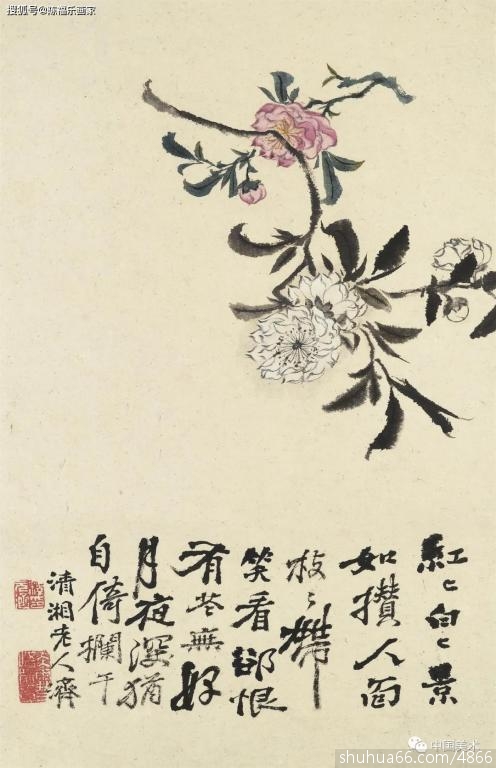 搜狐号@陈福乐画家
紅〻白〻景
如攢人面
枝〻帶
笑看卻恨
有花無好
月夜深猶
自倚欄干
清湘老人濟
中国美术
shuhua66.com/4866